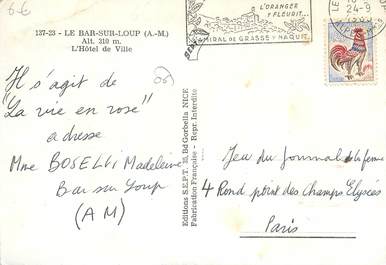 6€
137-23 - LE BAR-SUR-LOUP (A.-M.)
Alt. 310 m.
L'Hôtel de Ville
L'ORANGER
Y FLEURIT...
AMIRAL DE GRASSE Y NAQUIT
24-9
06
Il s'agit de
"La vie en rose"
adresse
Mme BOSELLI Madeleine
Bar sur Loup
(AM)
Editions S.E.P.T. 35, Bd Gorbella NICE
Fabrication Française - Repr. Interdite
Jeu du Journal de la femme
4 Rond point des Champs Elysées
Paris